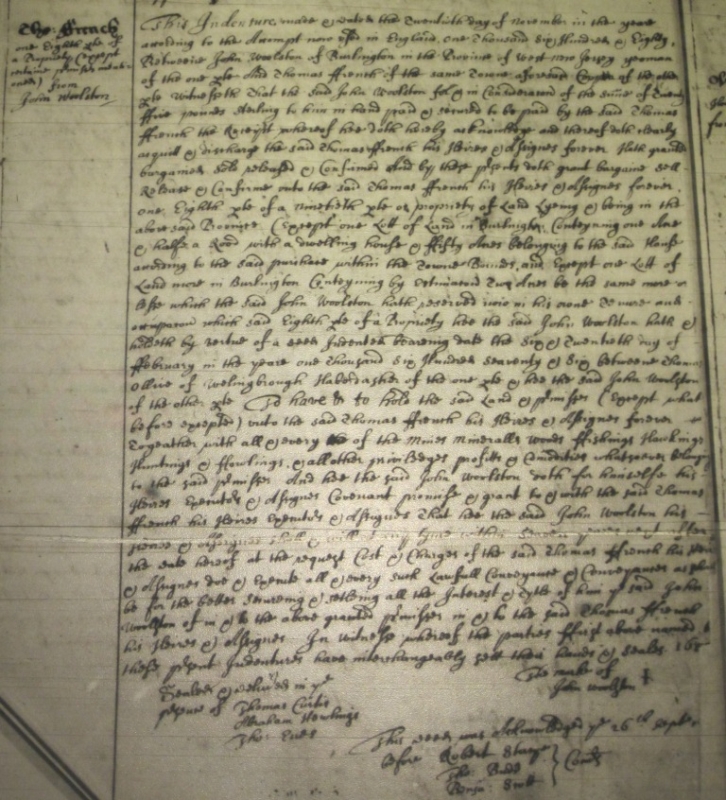 Tho: ffrench
one Eighth pte of
a Propriety (Except
certaine p'mises menti-
oned) from
John Woolston
This Indenture made & dated the Twentieth day of November in the yeare
according to the Accompt now used in England one Thousand Six Hundred & Eighty,
Betweene John Woolston of Burlington in the Province of West new Jersey yeoman
of the one pte And Thomas ffrench of the same Towne aforesaid Cooper of the other
pte Witnesseth That the said John Woolston for & in Consideration of the summe of Twenty
ffive pounds sterling to him in hand paid & secured to be paid by the said Thomas
ffrench the Receipt whereof hee doth hereby acknowledge and thereof doth clearly
acquitt & discharge the said Thomas ffrench his Heires & Assignes forever Hath granted
bargained sold released & Confirmed And by these p'sents doth grant bargaine sell
Release & Confirme unto the said Thomas ffrench his Heires & Assignes forever
one Eighth pte of a ninetieth pte or propriety of Land Lyeing & being in the
abovesaid Province (Except one Lott of Land in Burlington Conteyning one Acre
& halfe a Rood with a dwelling house & ffifty Acres belonging to the said House
according to the said purchase within the Towne Bounds, and Except one Lott of
Land more in Burlington Conteyning by estimation Two Acres be the same more or
lesse which the said John Woolston hath reserved in his owne
occupacon which said Eighth pte of a Propriety hee the said John Woolston hath &
holdeth by vertue of a deed Indented bearing date the Six & Twentieth day of
ffebruary in the yeare one Thousand Six Hundred seaventy & Six betweene Thomas
Ollive of Welingbrough Haberdasher of the one pte & hee the said John Woolston
of the other pte To have & to hold the said Land & p'mises (Except what
before excepted) unto the said Thomas ffrench his Heires & Assignes forever
Togeather with all & every of the Mines Mineralls Woods ffishings Hawkings
Huntings & ffowlings & all other priviledges profits & Comodities whatsoever belonging
to the said p'mises And hee the said John Woolston doth for himselfe his
Heires Executors & Assignes Covenant promise & grant to & with the said Thomas
ffrench his Heires Executors & Assignes That hee the said John Woolston his
Heires & Assignes shall & will at any time within Seaven yeares next after
the date hereof at the request Cost & Charges of the said Thomas ffrench his Heires
& Assignes doe & Execute all & every such Lawfull Conveyance & Conveyances as shall
be for the better secureing & setling all the Interest & Tytle of him ye said John
Woolston of in & to the above granted p'mises in & to the said Thomas ffrench
his Heires & Assignes. In Witness whereof the parties ffirst above named to
these p'sent Indentures have interchangeably sett their hands & Seales 168
Sealed & delivered in ye
p'sence of Thomas Curtis
Abraham Hewlings
Tho: Eves
The marke of
John Woolston
This deed was Acknowledged ye 26th Septr
before Robert Stacy
Tho: Budd
Benja: Scott